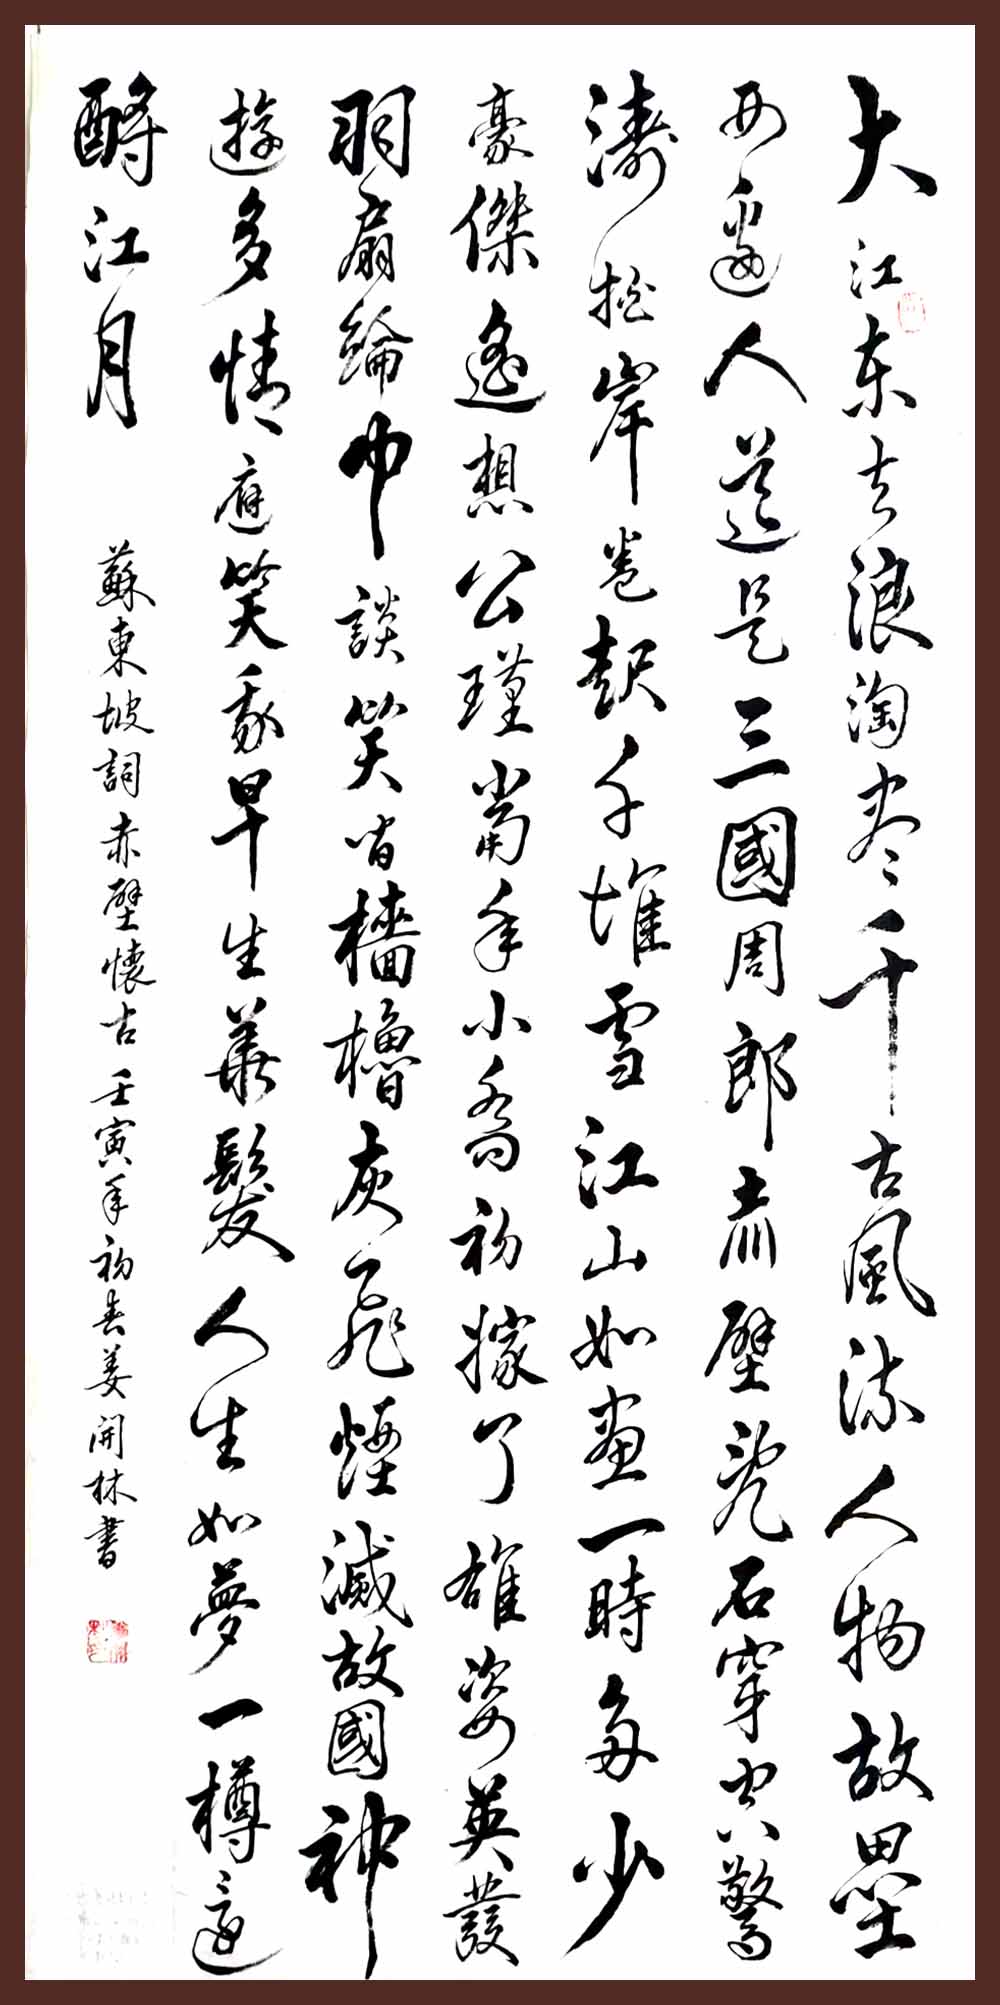 大江东去浪淘尽千古風流人物故壘
西邊人道是三國周郎赤壁亂石穿空驚
濤拍岸卷起千堆雪江山如畫一時多少
豪傑遙想公瑾當年小喬初嫁了雄姿英發
羽扇綸巾談笑間檣櫓灰飛煙滅故國神
遊多情應笑我早生華髮人生如夢一樽還
酹江月 蘇東坡詞赤壁懷古壬寅年初春姜開林書